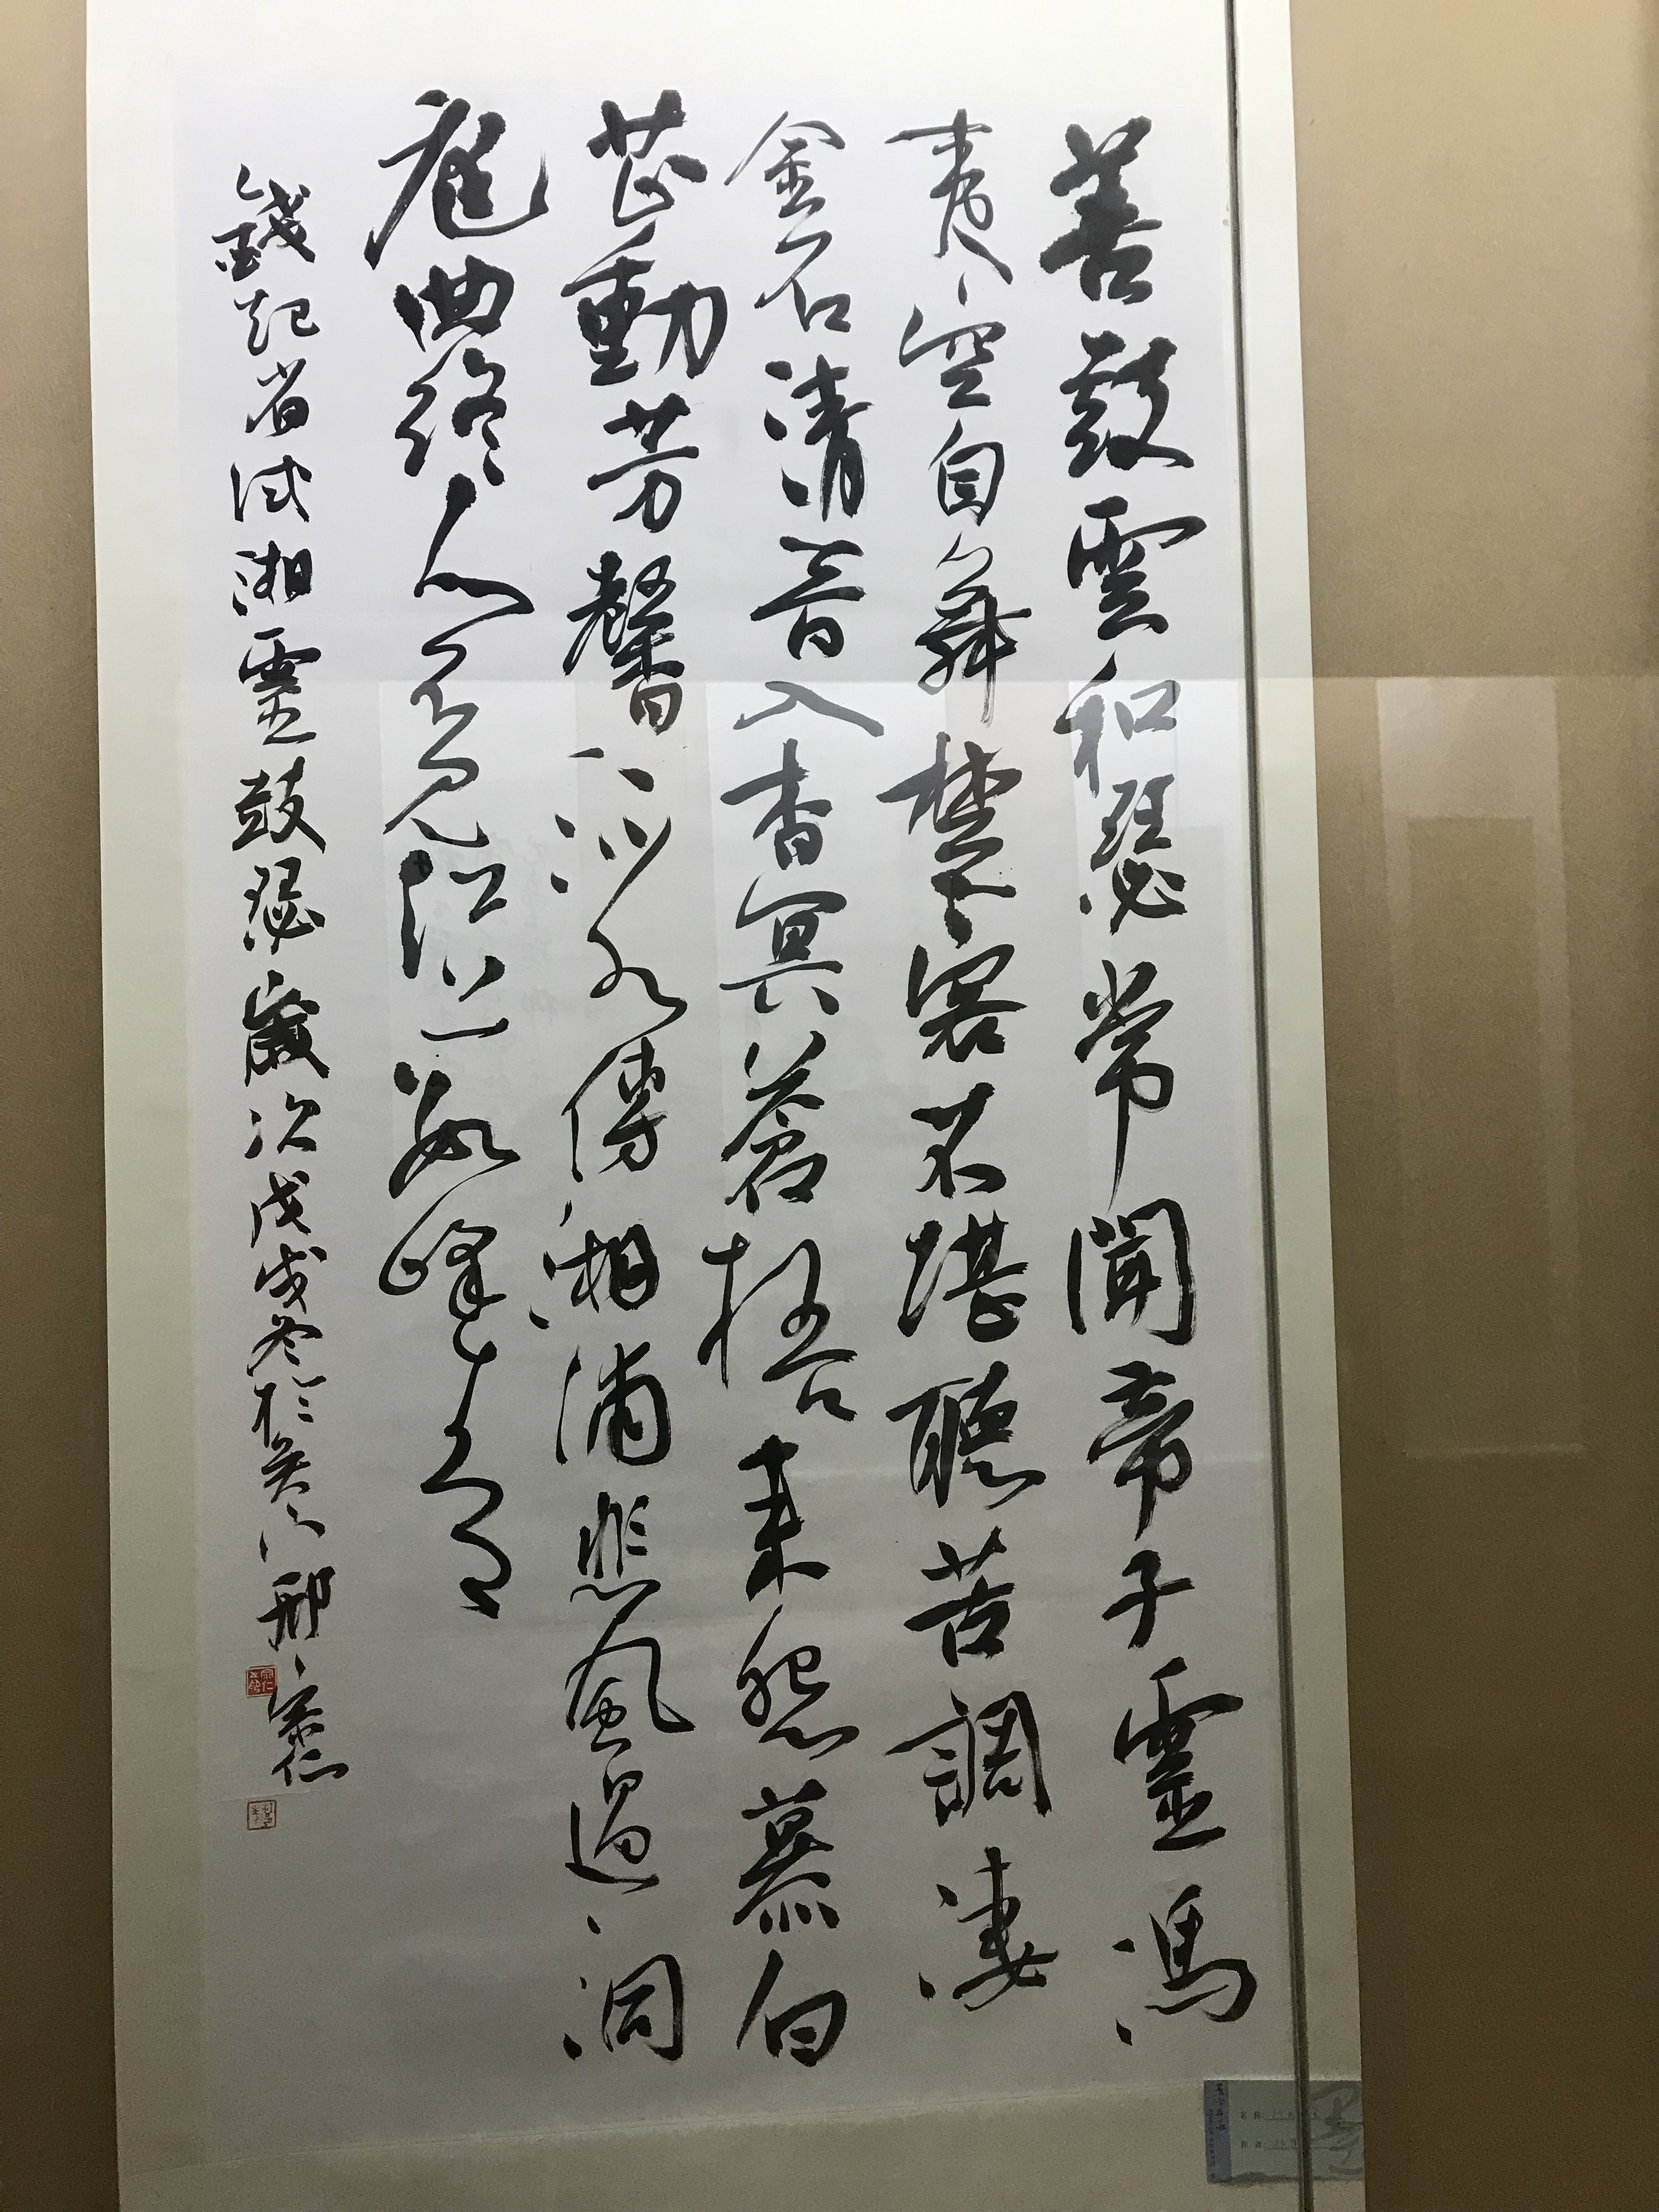 善鼓雲和瑟常聞帝子靈馮
夷空自舞楚客不堪聽苦調淒
金石清音入杳冥蒼梧來怨慕白
芷動芳馨流水傳湘浦悲風過洞
庭曲終人不見江上數峰青
錢起省試湘靈鼓瑟歲次戊戌冬於吳門邢